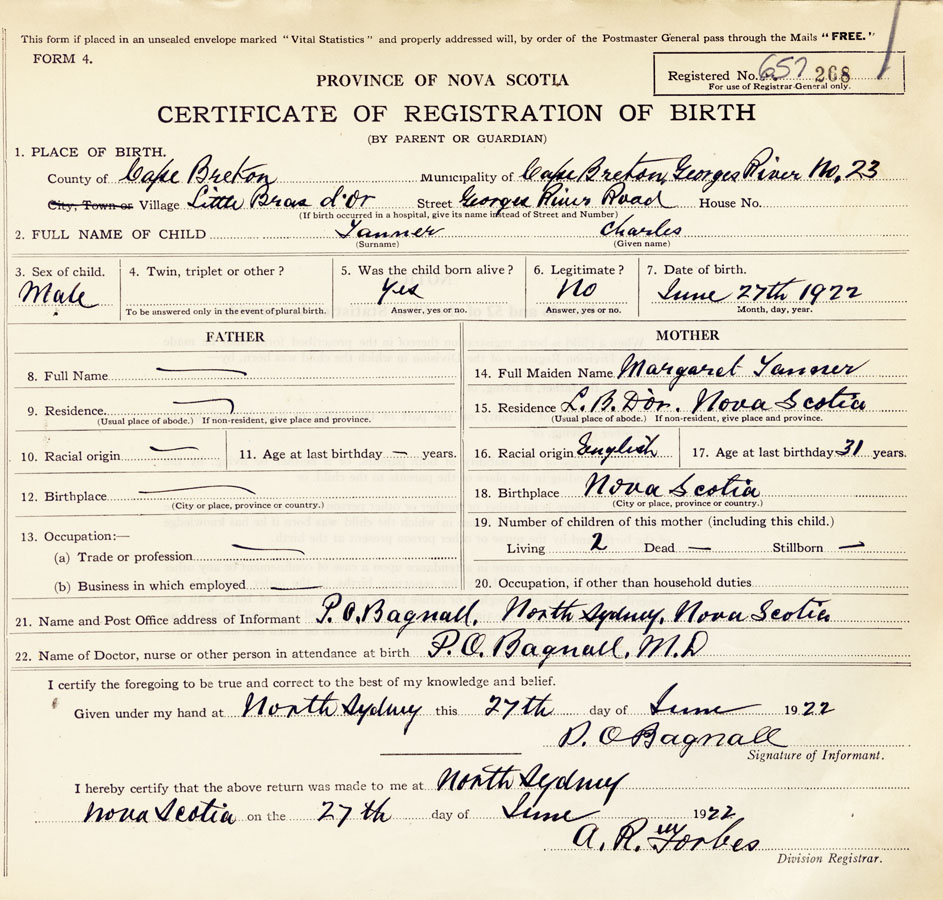 This form if placed in an unsealed envelope marked "Vital Statistics" and properly addressed will, by order of the Postmaster General pass through the Mails "FREE."
FORM 4.
Registered No. 657 268
For use of Registrar-General only.
PROVINCE OF NOVA SCOTIA
CERTIFICATE OF REGISTRATION OF BIRTH
(BY PARENT OR GUARDIAN)
1. PLACE OF BIRTH.
County of Cape Breton Municipality of Cape Breton, Georges River No, 23
City, Town or Village Little Bras d'Or Street Georges River Road House No.
(If birth occurred in a hospital, give its name instead of Street and Number)
2. FULL NAME OF CHILD Tanner Charles
(Surname) (Given name)
3. Sex of child. 4. Twin, triplet or other? 5. Was the child born alive? 6. Legitimate? 7. Date of birth.
Male Yes No June 27th 1922
To be answered only in the event of plural birth. Answer, yes or no. Answer, yes or no. Month, day, year.
FATHER MOTHER
8. Full Name — 14. Full Maiden Name Margaret Tanner
9. Residence. — 15. Residence L. B. D'or. Nova Scotia
(Usual place of abode.) If non-resident, give place and province. (Usual place of abode.) If non-resident, give place and province.
10. Racial origin — 11. Age at last birthday — years. 16. Racial origin English 17. Age at last birthday 31 years.
12. Birthplace — 18. Birthplace Nova Scotia
(City or place, province or country.) (City or place, province or country.)
13. Occupation:— 19. Number of children of this mother (including this child.)
(a) Trade or profession — Living 2 Dead — Stillborn —
(b) Business in which employed — 20. Occupation, if other than household duties
21. Name and Post Office address of Informant P. O. Bagnall, North Sydney, Nova Scotia
22. Name of Doctor, nurse or other person in attendance at birth P. O. Bagnall, M. D
I certify the foregoing to be true and correct to the best of my knowledge and belief.
Given under my hand at North Sydney this 27th day of June 1922
P. O Bagnall
Signature of Informant.
I hereby certify that the above return was made to me at North Sydney
Nova Scotia on the 27th day of June 1922
A. R. Forbes
Division Registrar.